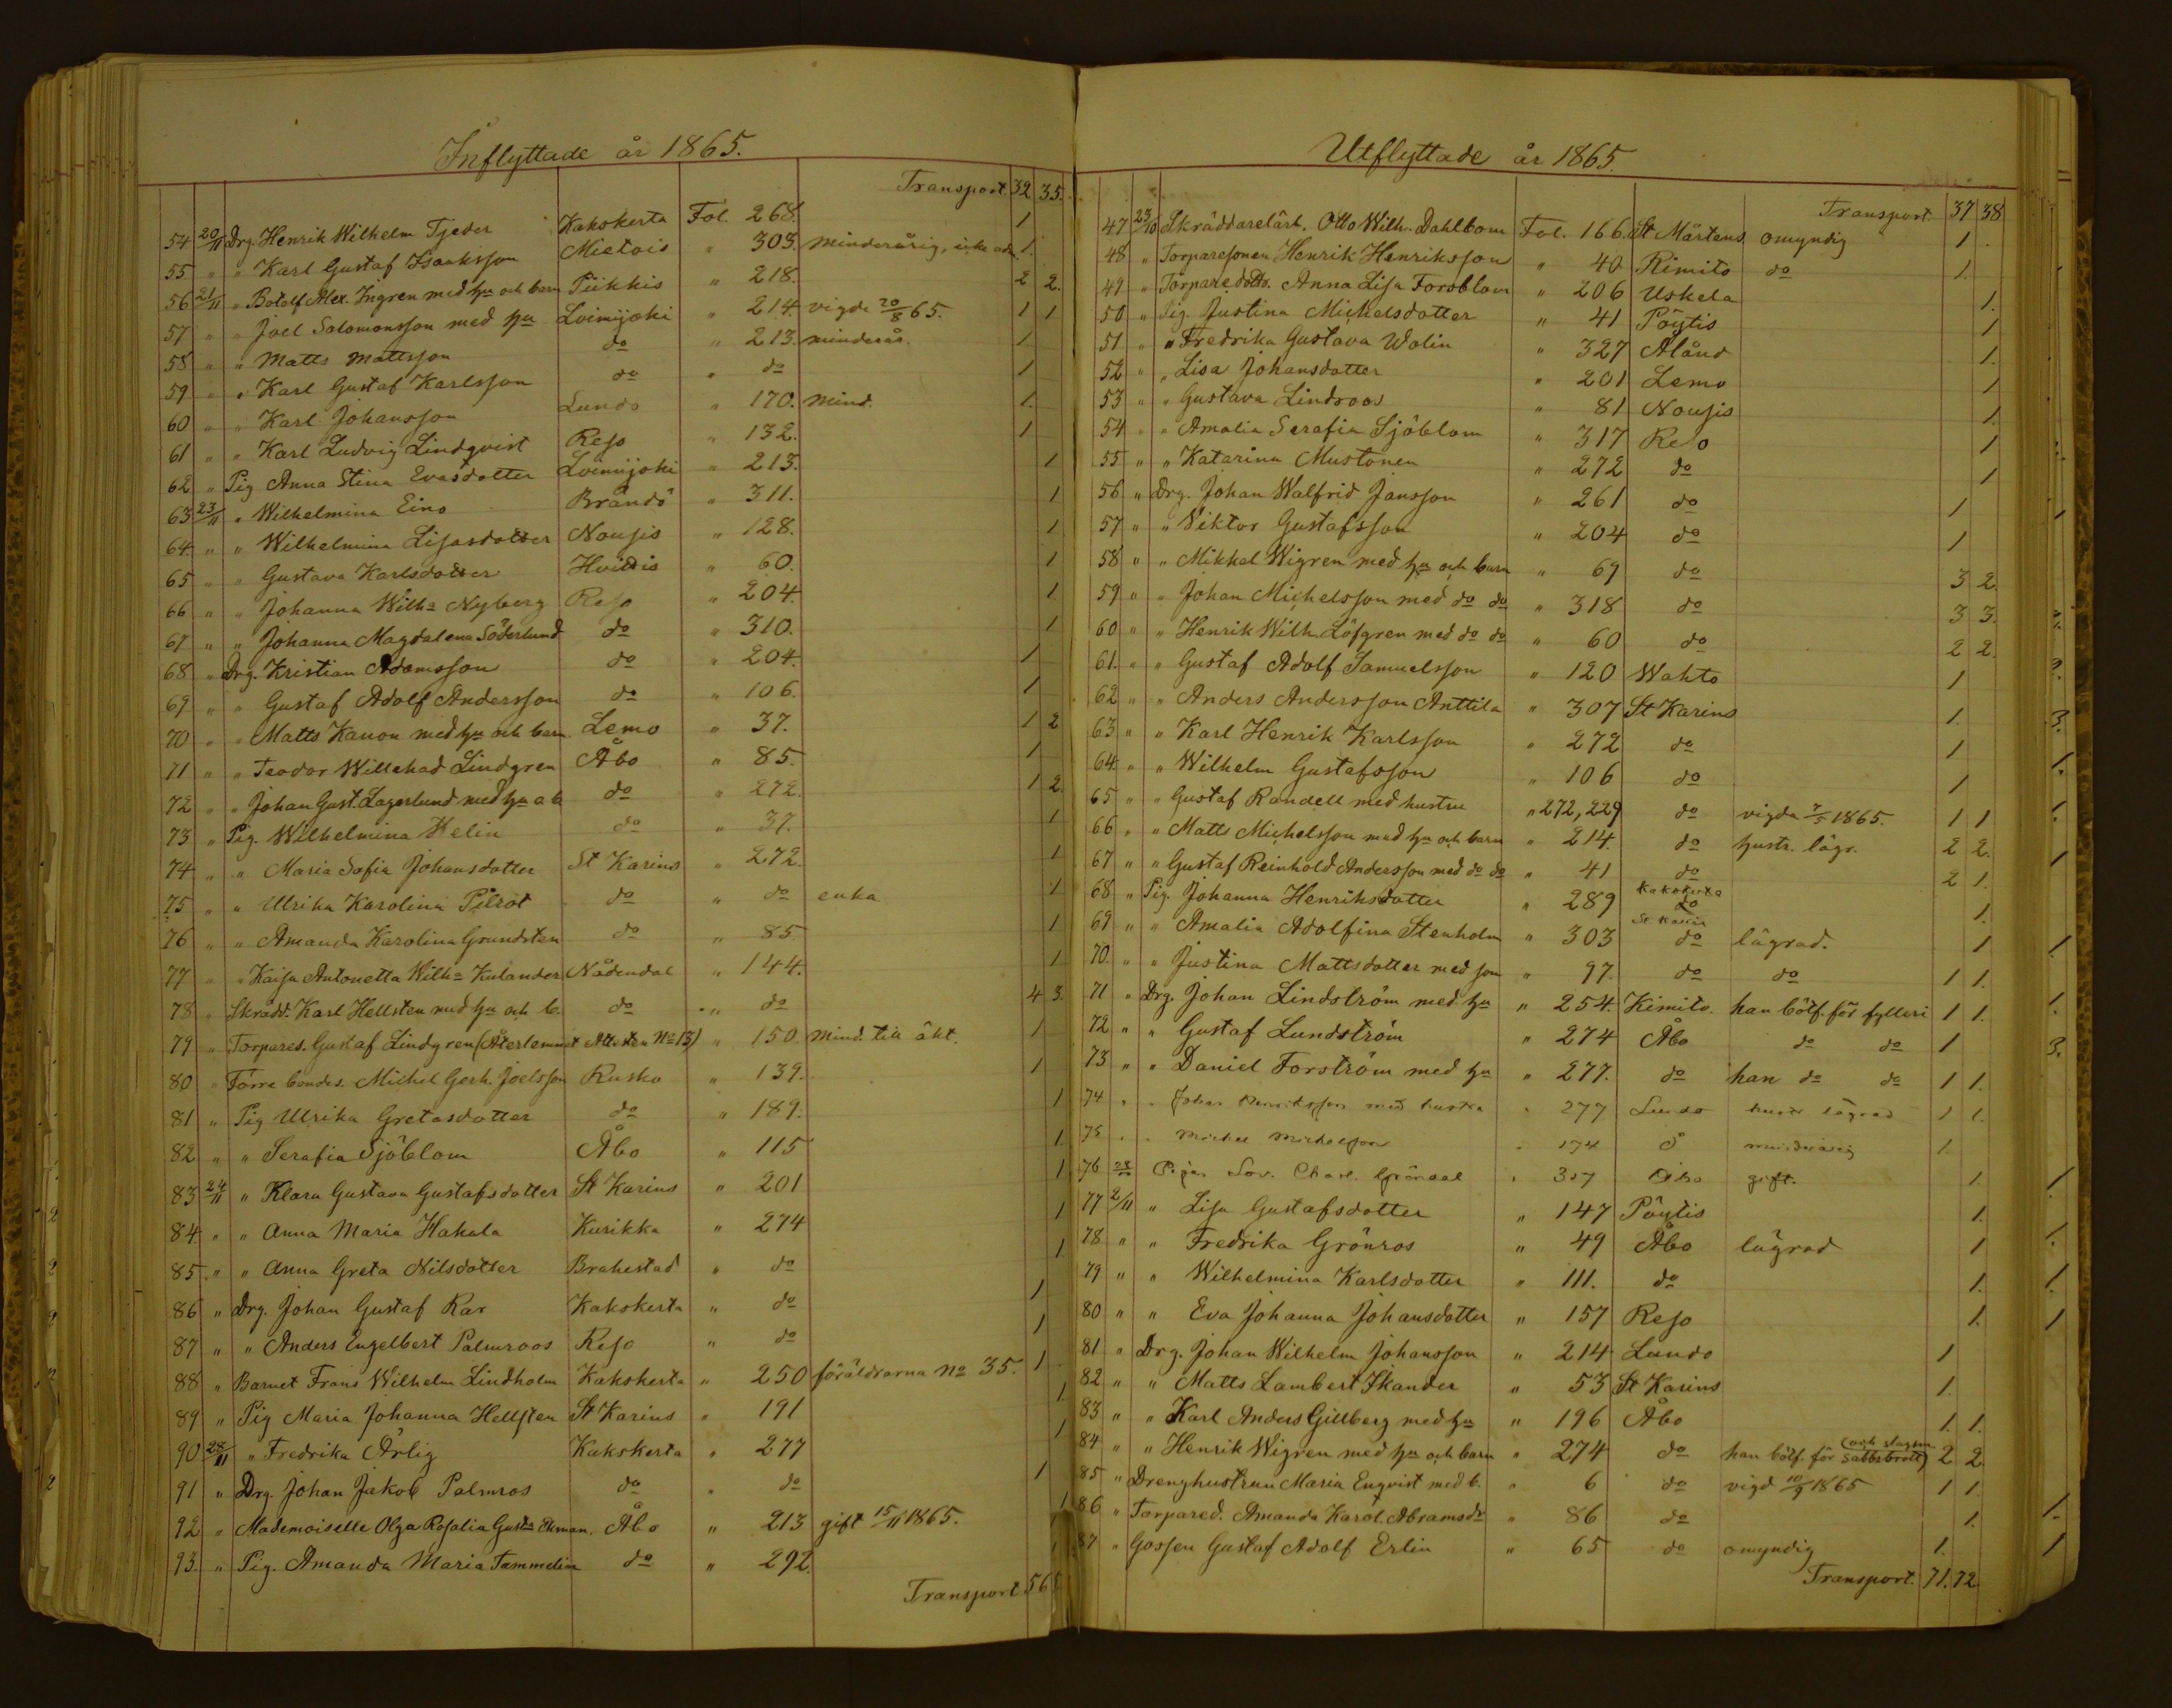 Inflyttade år 1865.
Transport. 32 35.
54 20/11 Drg. Henrik Wilhelm Tjeder Kakskerta Fol. 268. 1
55 " " Karl Gustaf Isaaksson Mietois " 303. minderårig, icke adm. 1.
56 21/11 " Botolf Alex. Ingren med hu och barn Piikkis " 218. 2 2.
57 " " Joel Salomonsson med hu Loimijoki " 214. vigde 20/8 65. 1 1
58 " " Matts Mattsson do " 213. minderår. 1
59 " " Karl Gustaf Karlsson do " do 1
60 " " Karl Johansson Lundo " 170. mind. 1.
61 " " Karl Ludvig Lindqvist Reso " 132. 1
62 " Pig Anna Stina Evasdotter Loimijoki " 213. 1
63 23/11 " Wilhelmina Eino Brändö " 311. 1
64 " " Wilhelmina Lisasdotter Nousis " 128. 1
65 " " Gustava Karlsdotter Hvittis " 60. 1
66 " " Johanna Wilh:a Nyberg Reso " 204. 1
67 " " Johanna Magdalena Söderlund do " 310. 1
68 " Drg. Kristian Adamsson do " 204. 1
69 " " Gustaf Adolf Andersson do " 106. 1
70 " " Matts Kanon med hu och barn Lemo " 37. 1 2
71 " " Teodor Willehad Lindgren Åbo " 85. 1
72 " " Johan Gust. Lagerlund med hu o b do " 272. 1 2.
73 " Pig. Wilhelmina Helin do " 37. 1
74 " " Maria Sofia Johansdotter St Karins " 272. 1
75 " " Ulrika Karolina Pilrot do " do enka 1
76 " " Amanda Karolina Grundsten do " 85 1
77 " " Kaisa Antonetta Wilh:a Kulander Nådendal " 144. 1
78 " Skrädd. Karl Hellsten med hu och b. do " do 4 3.
79 " Torpares. Gustaf Lindgren (Återlemnat Attesten No 13) " 150. mind. till äkt. 1
80 " Förre bondes. Michel Gerh. Joelsson Rusko " 139. 1
81 " Pig Ulrika Gretasdotter do " 189. 1
82 " " Serafia Sjöblom Åbo " 115 1
83 24/11 " Klara Gustava Gustafsdotter St Karins " 201 1
84 " " Anna Maria Hakala Kurikka " 274 1
85 " " Anna Greta Nilsdotter Brahestad " do 1
86 " Drg. Johan Gustaf Rar Kakskerta " do 1
87 " " Anders Engelbert Palmroos Reso " do 1
88 " Barnet Frans Wilhelm Lindholm Kakskerta " 250 föräldrarna No 35. 1
89 " Pig Maria Johanna Hellsten St Karins " 191 1
90 28/11 " Fredrika Ärlig Kakskerta " 277 1
91 " Drg. Johan Jakob Palmros do " do 1
92 " Mademoiselle Olga Rosalia Gust:a Ekman. Åbo " 213 gift 15/11 1865. 1
93. " Pig. Amanda Maria Tammelin do " 292.
Transport 56
Utflyttade år 1865.
Transport. 37 38
47 23/10 Skräddarelärl. Otto Wilh. Dahlbom Fol. 166. St Mårtens omyndig 1
48 " Torparesonen Henrik Henriksson " 40 Rimito do 1.
49 " Torparedottr. Anna Lisa Forsblom " 206 Uskela 1.
50 " Pig Justina Michelsdotter " 41 Pöytis 1
51 " " Fredrika Gustava Wolin " 327 Åland 1.
52 " " Lisa Johansdotter " 201 Lemo 1
53 " " Gustava Lindroos " 81 Nousis 1.
54 " " Amalia Serafia Sjöblom " 317 Reso 1
55 " " Katarina Mustonen " 272 do 1
56 " Drg. Johan Walfrid Jansson " 261 do 1
57 " " Viktor Gustafsson " 204 do 1
58 " " Mikkel Wigren med hu och barn " 69 do 3 2.
59 " " Johan Michelsson med do do " 318 do 3 3.
60 " " Henrik Wilh. Löfgren med do do " 60 do 2 2.
61. " " Gustaf Adolf Samuelsson " 120 Wahto 1
62 " " Anders Andersson Anttila " 307 St Karins 1.
63 " " Karl Henrik Karlsson " 272 do 1
64. " " Wilhelm Gustafsson " 106 do 1
65 " " Gustaf Randell med hustru " 272, 229 do vigda 7/5 1865. 1 1
66 " " Matts Michelsson med hu och barn " 214 do hustr. lägr. 2 2.
67 " " Gustaf Reinhold Andersson med do do " 41 do 2 1.
68 " Pig. Johanna Henriksdotter " 289 Kakskerta do 1.
69 " " Amalia Adolfina Stenholm " 303 St Karin do lägrad. 1
70. " " Justina Mattsdotter med son " 97. do do 1 1.
71 " Drg. Johan Lindström med hu " 254. Kimito. han bötf. för fylleri 1 1.
72 " " Gustaf Lundström " 274 Åbo do do 1
73 " " Daniel Forström med hu " 277. do han do do 1 1.
74 " " Johan Henriksson med hustru " 277 Lundo hustr lägrad 1 1.
75 " " Michel Michelsson " 174 minderårig 1
76 28/10 Pigan Lov. Charl. Grändal " 327 Åbo gift. 1.
77 2/11 " Lisa Gustafsdotter " 147 Pöytis 1.
78 " " Fredrika Grönros " 49 Åbo lägrad 1
79 " " Wilhelmina Karlsdotter " 111. do 1.
80 " " Eva Johanna Johansdotter " 157 Reso 1.
81 " Drg. Johan Wilhelm Johansson " 214 Lundo 1
82 " " Matts Lambert Skander " 53 St Karins 1.
83 " " Karl Anders Gillberg med hu " 196 Åbo 1. 1.
84 " " Henrik Wigren med hu och barn " 274 do han bötf. för sabbsbrott (och slagsm. 2 2.
85 " Drenghustrun Maria Enqvist med b. " 6 do vigd 10/9 1865 1 1.
86 " Torpared. Amanda Karol. Abramsdr " 86 do 1.
87 " Gossen Gustaf Adolf Erlin " 65 do omyndig 1.
Transport. 71. 72